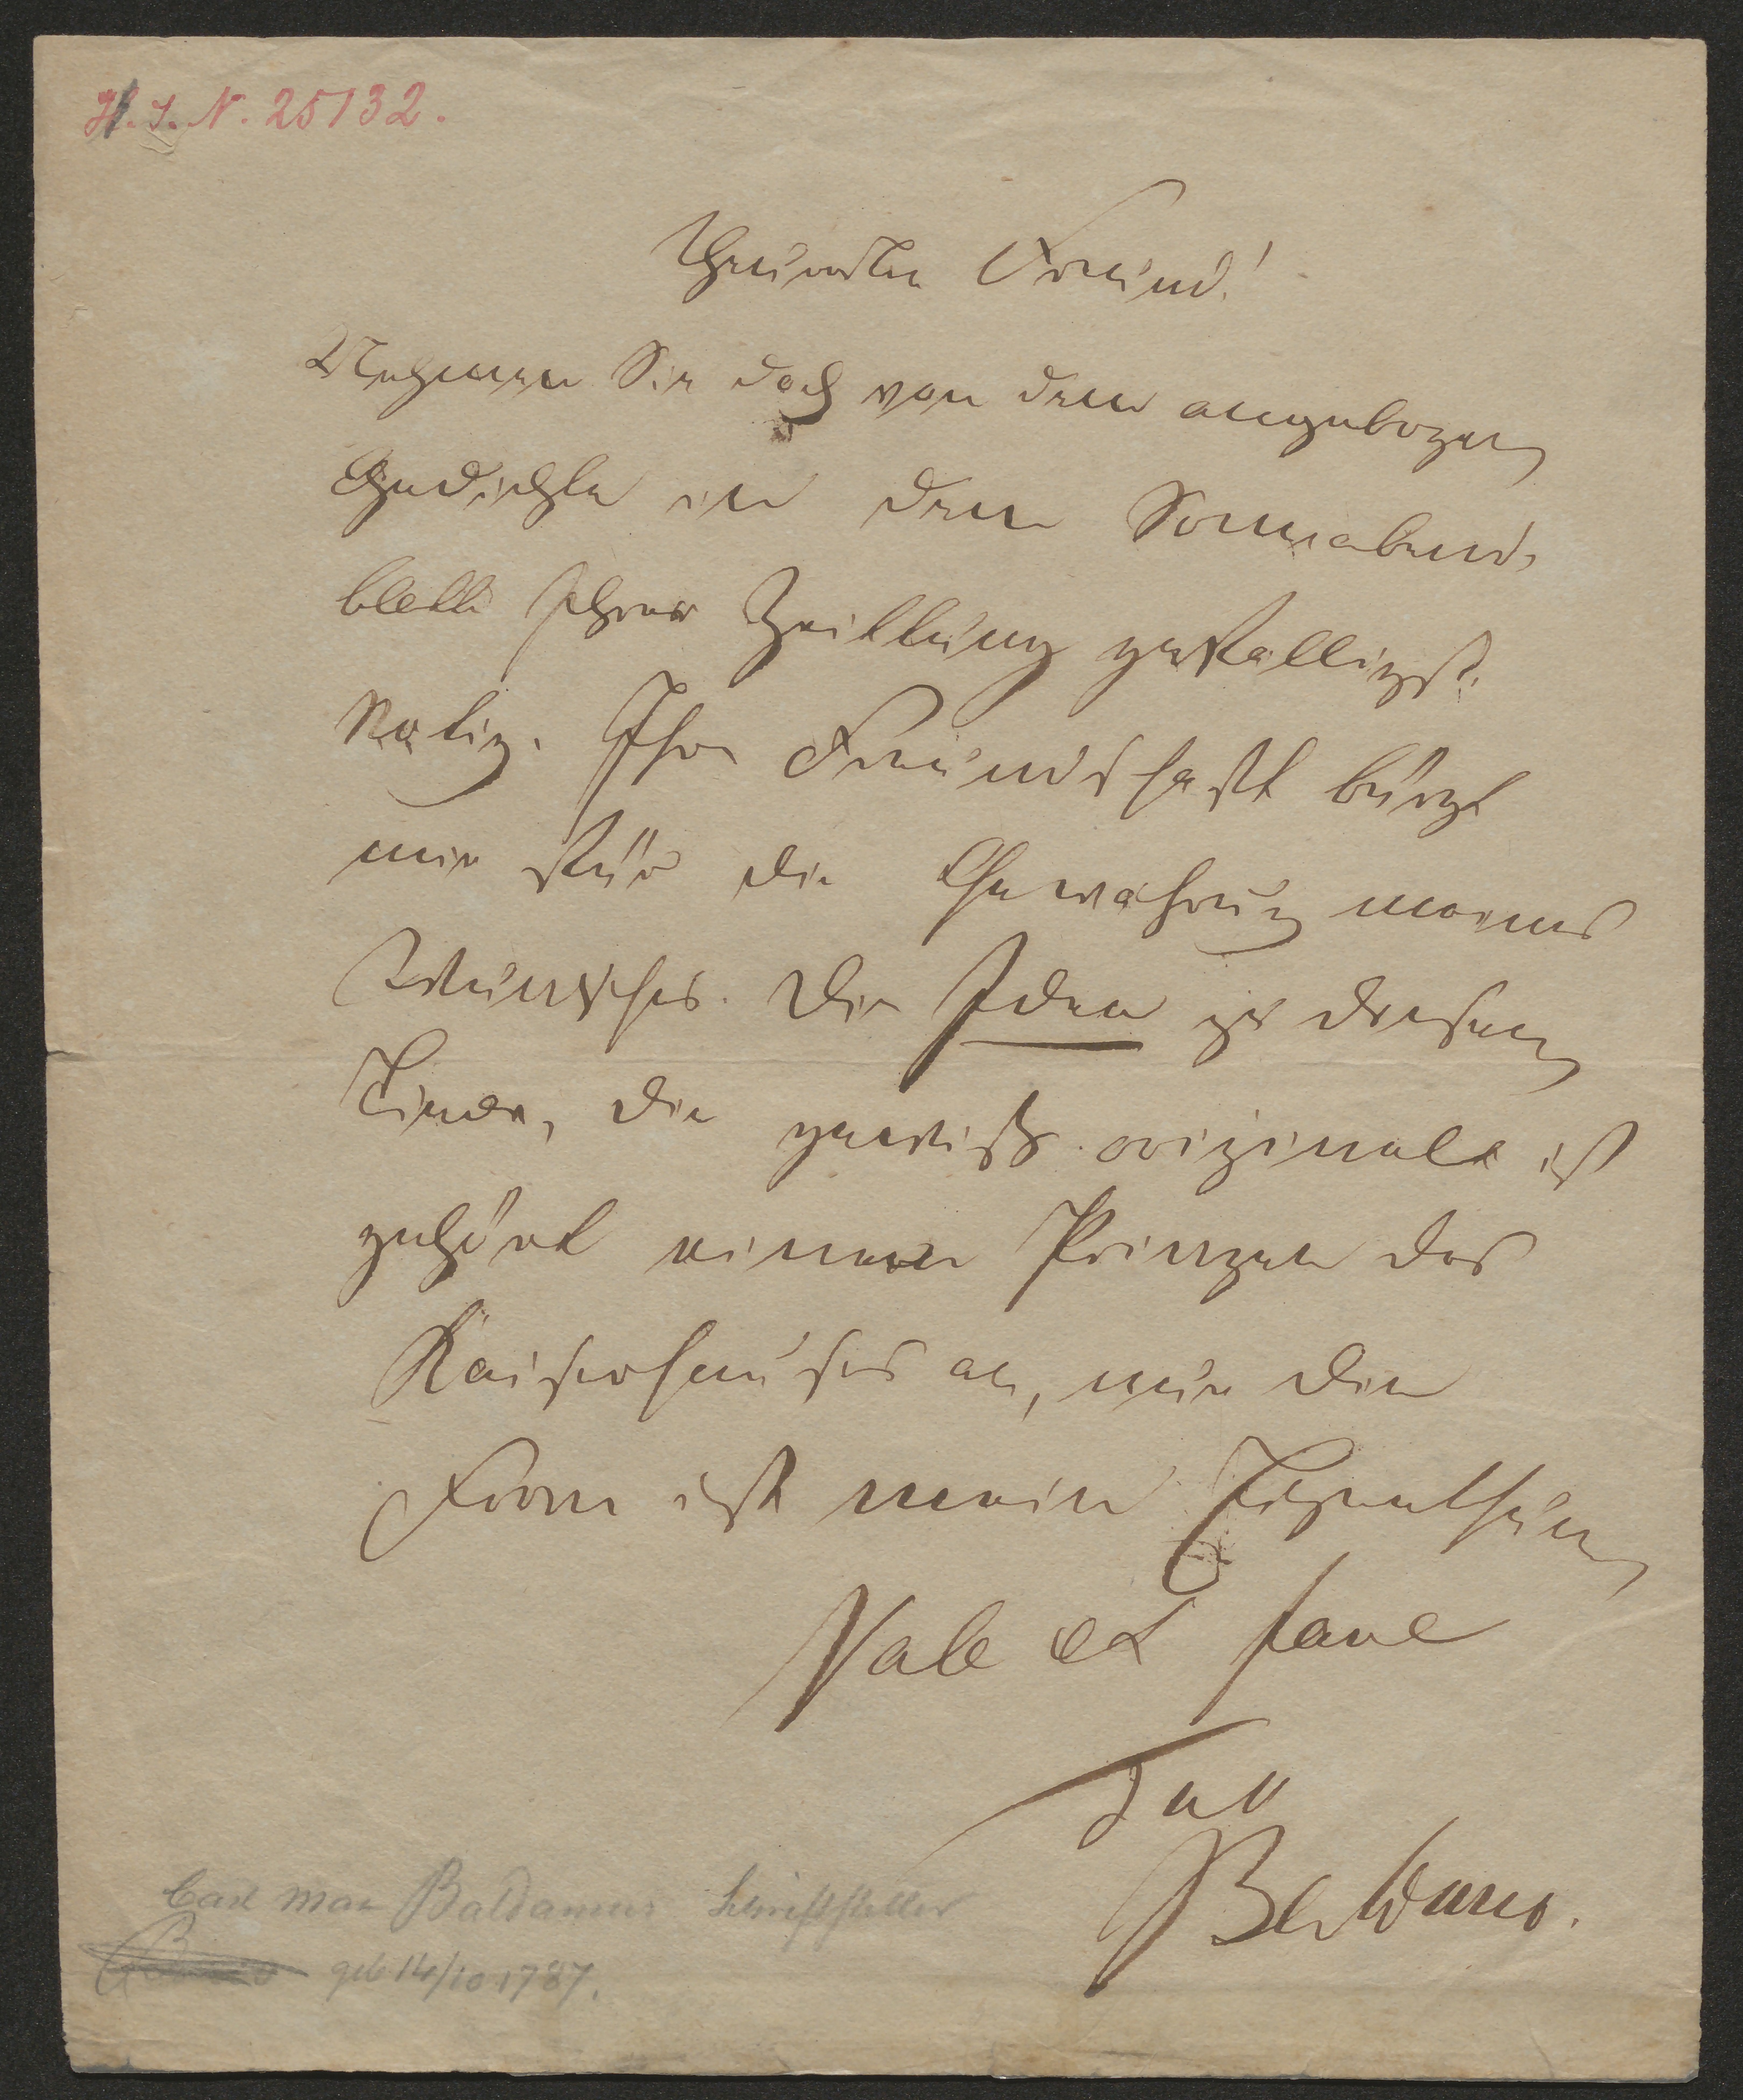 H. I. N. 25132.
Theurster Freund!
Nehmen Sie doch von dem angebogenen
Gedichte in dem Sonnabend-
blatte Ihrer Zeittung gefälligst
Notiz. Ihre Freundschaft bürgt
mir für die Gewährung meines
Wunsches. Die Idee zu diesem
Liede, die gewiß originell ist
gehört einem Prinzen des
Kaiserhauses an, nur die
Form ist mein Eigenthum
Vale et fave
Tuo
Baldamus.
Carl Max Baldamus Schriftsteller
geb 14/10 1787.